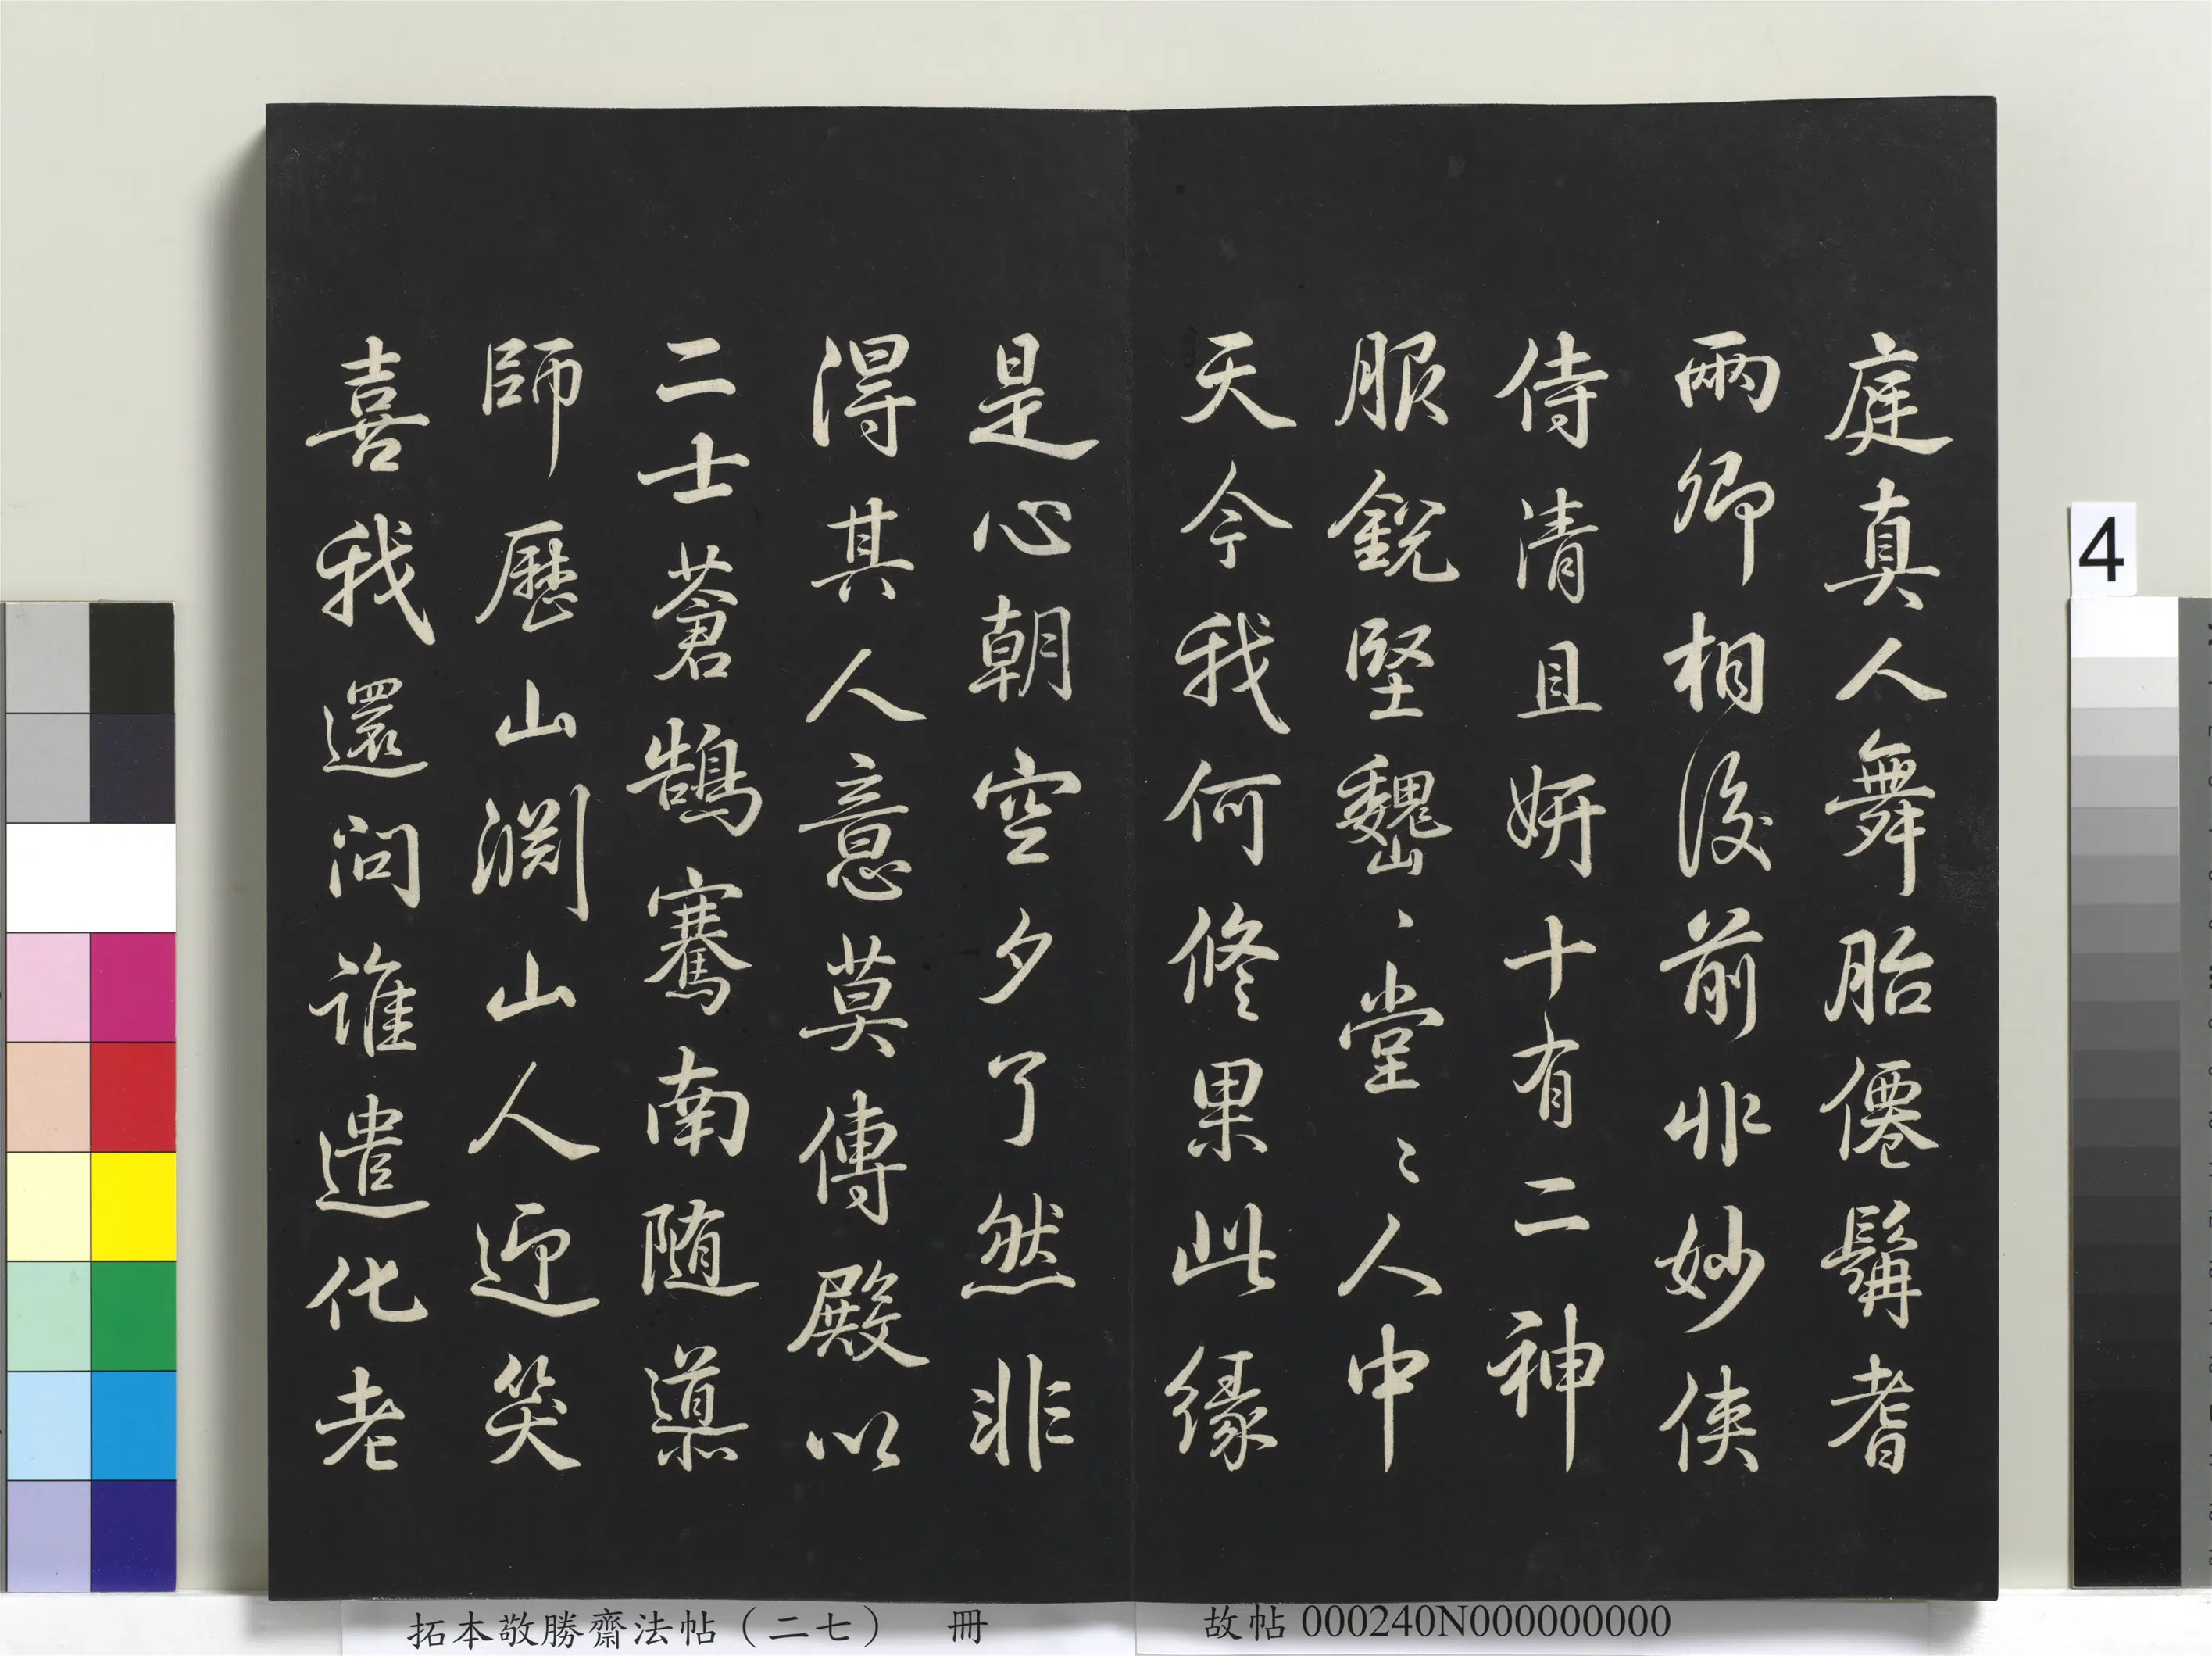 庭真人舞胎僊鬅耆
兩卿相後前丱妙侠
侍清且妍十有二神
服銳堅巍〻堂〻人中
天今我何修果此緣
是心朝空夕了然非
得其人意莫傳殿以
二士蒼鵠騫南随道
師歷山淵山人迎笑
喜我還問誰遣化老
拓本敬勝齋法帖（二七） 冊
故帖 000240N000000000
4